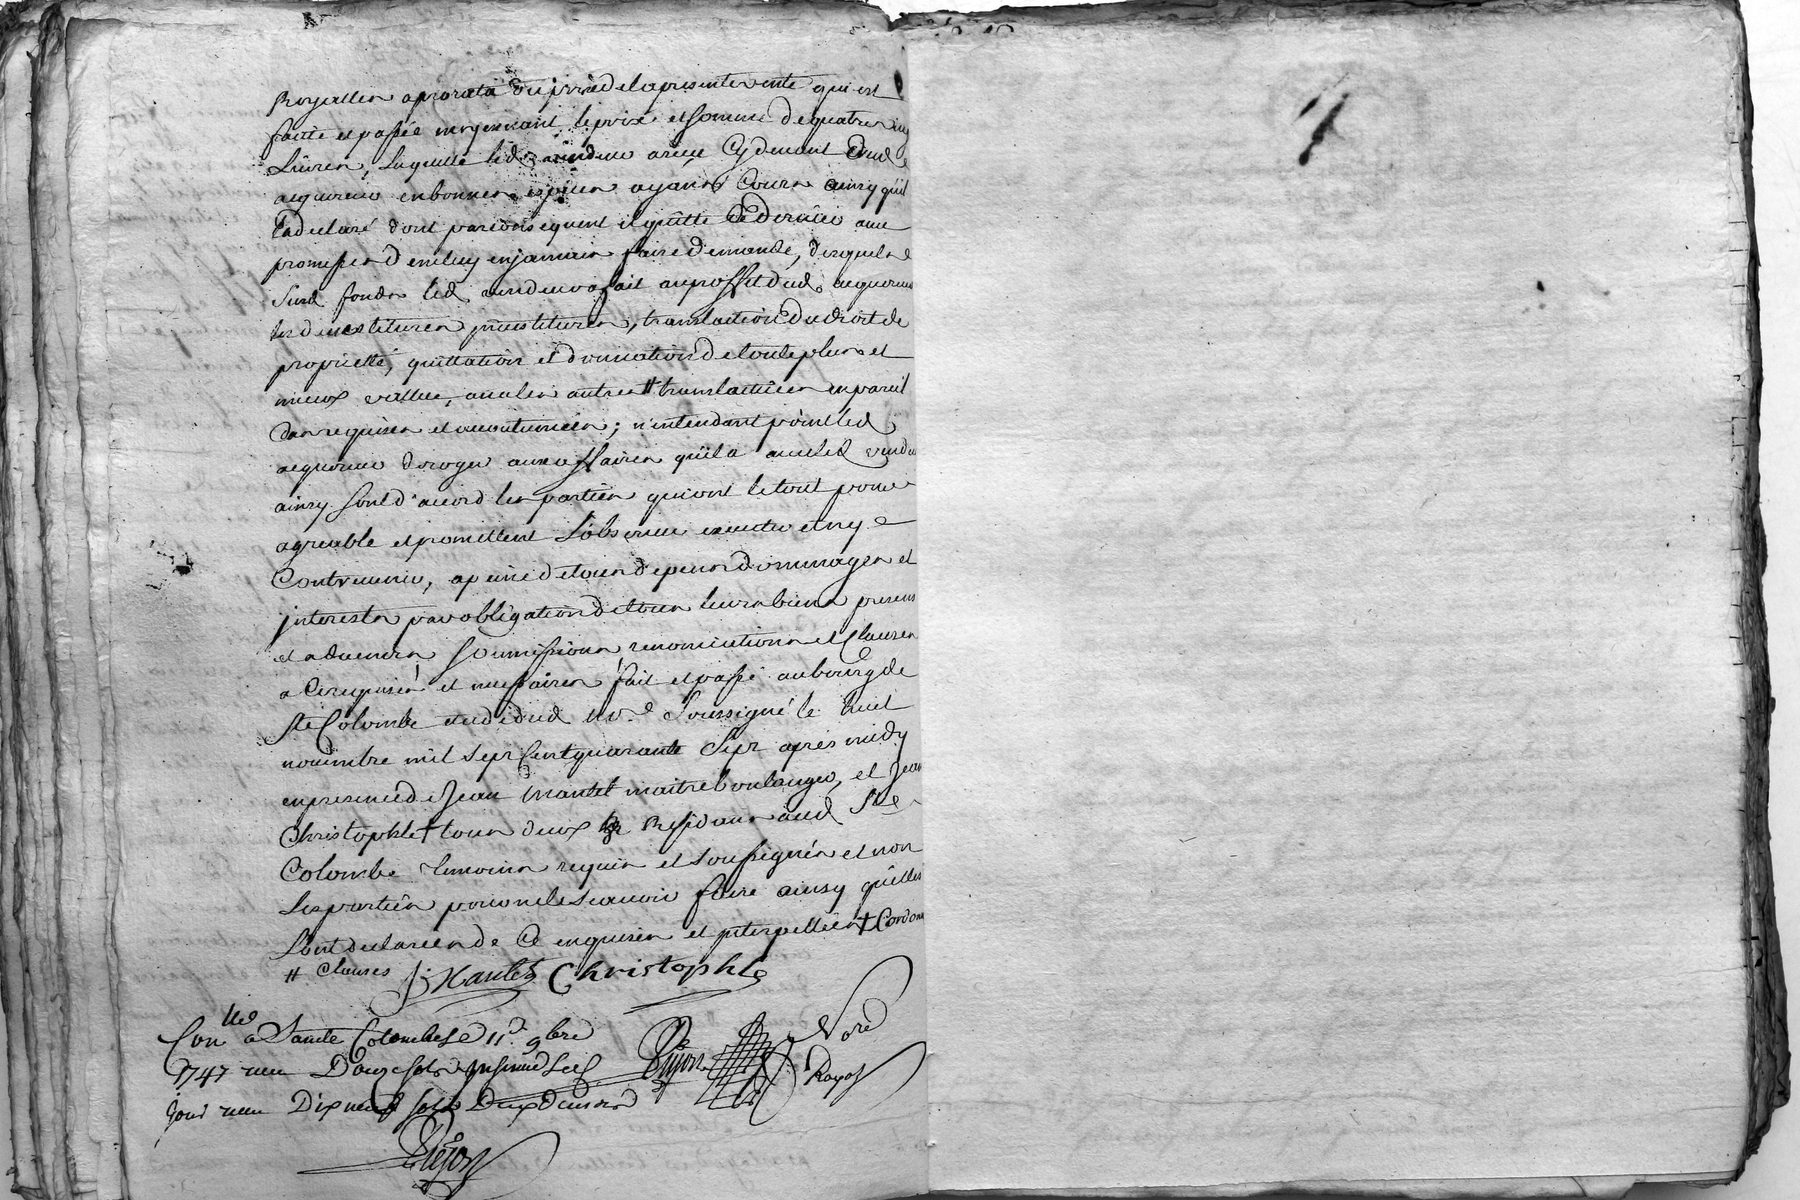 Royalles aprorata du prix de la presente vente qui est
faitte et passée moyenant le prix et somme de quatre
Livres, laquelle led. vendeur a reçue cy devant dud.
acquereur en bonnes especes ayant cours ainsy qu'il
l'a declaré dont par consequent il quitte ce dernier avec
promesses d'en luy en jamais faire demande, desquels
susd. fonds led. vendeur a fait au proffit dud. acquereur
les devestitures investitures, translation du droit de
proprietté, quittation et donnation de toute plus et
mieux vallue, avec les autres # translatives en pareil
cas requises et accoutumées; n'entendant point led.
acquereur deroger aux affaires qu'il a avec led. vendeur
ainsy sont d'acord les parties qui ont le tout pour
agreable et promettent l'observer executer et n'y
contrevenir, a peine de tous depens dommages et
interests par obligation de tous leurs biens presens
et advenirs soumissions renonciations et clauses
a ce requises et necessaires fait et passé au bourg de
Ste Colombe etude dud. nore. soussigné le huit
novembre mil sept cent quarante sept après midy
en presence de Jean Mantel maitre boulanger, et Jean
Christophle + tous deux residans aud. Ste
Colombe temoins requis et soussignés et non
les parties pour ne le scavoir faire ainsy qu'elles
l'ont declarées de ce enquises et interpellées + Cordon
# clauses J: Mantel Christophle
Conllé a Sainte Colombe le 11e. 9bre
1747 reçu Douze sols insinué led.
jour reçu Dix neuf sols Deux deniers
Nore
Royal